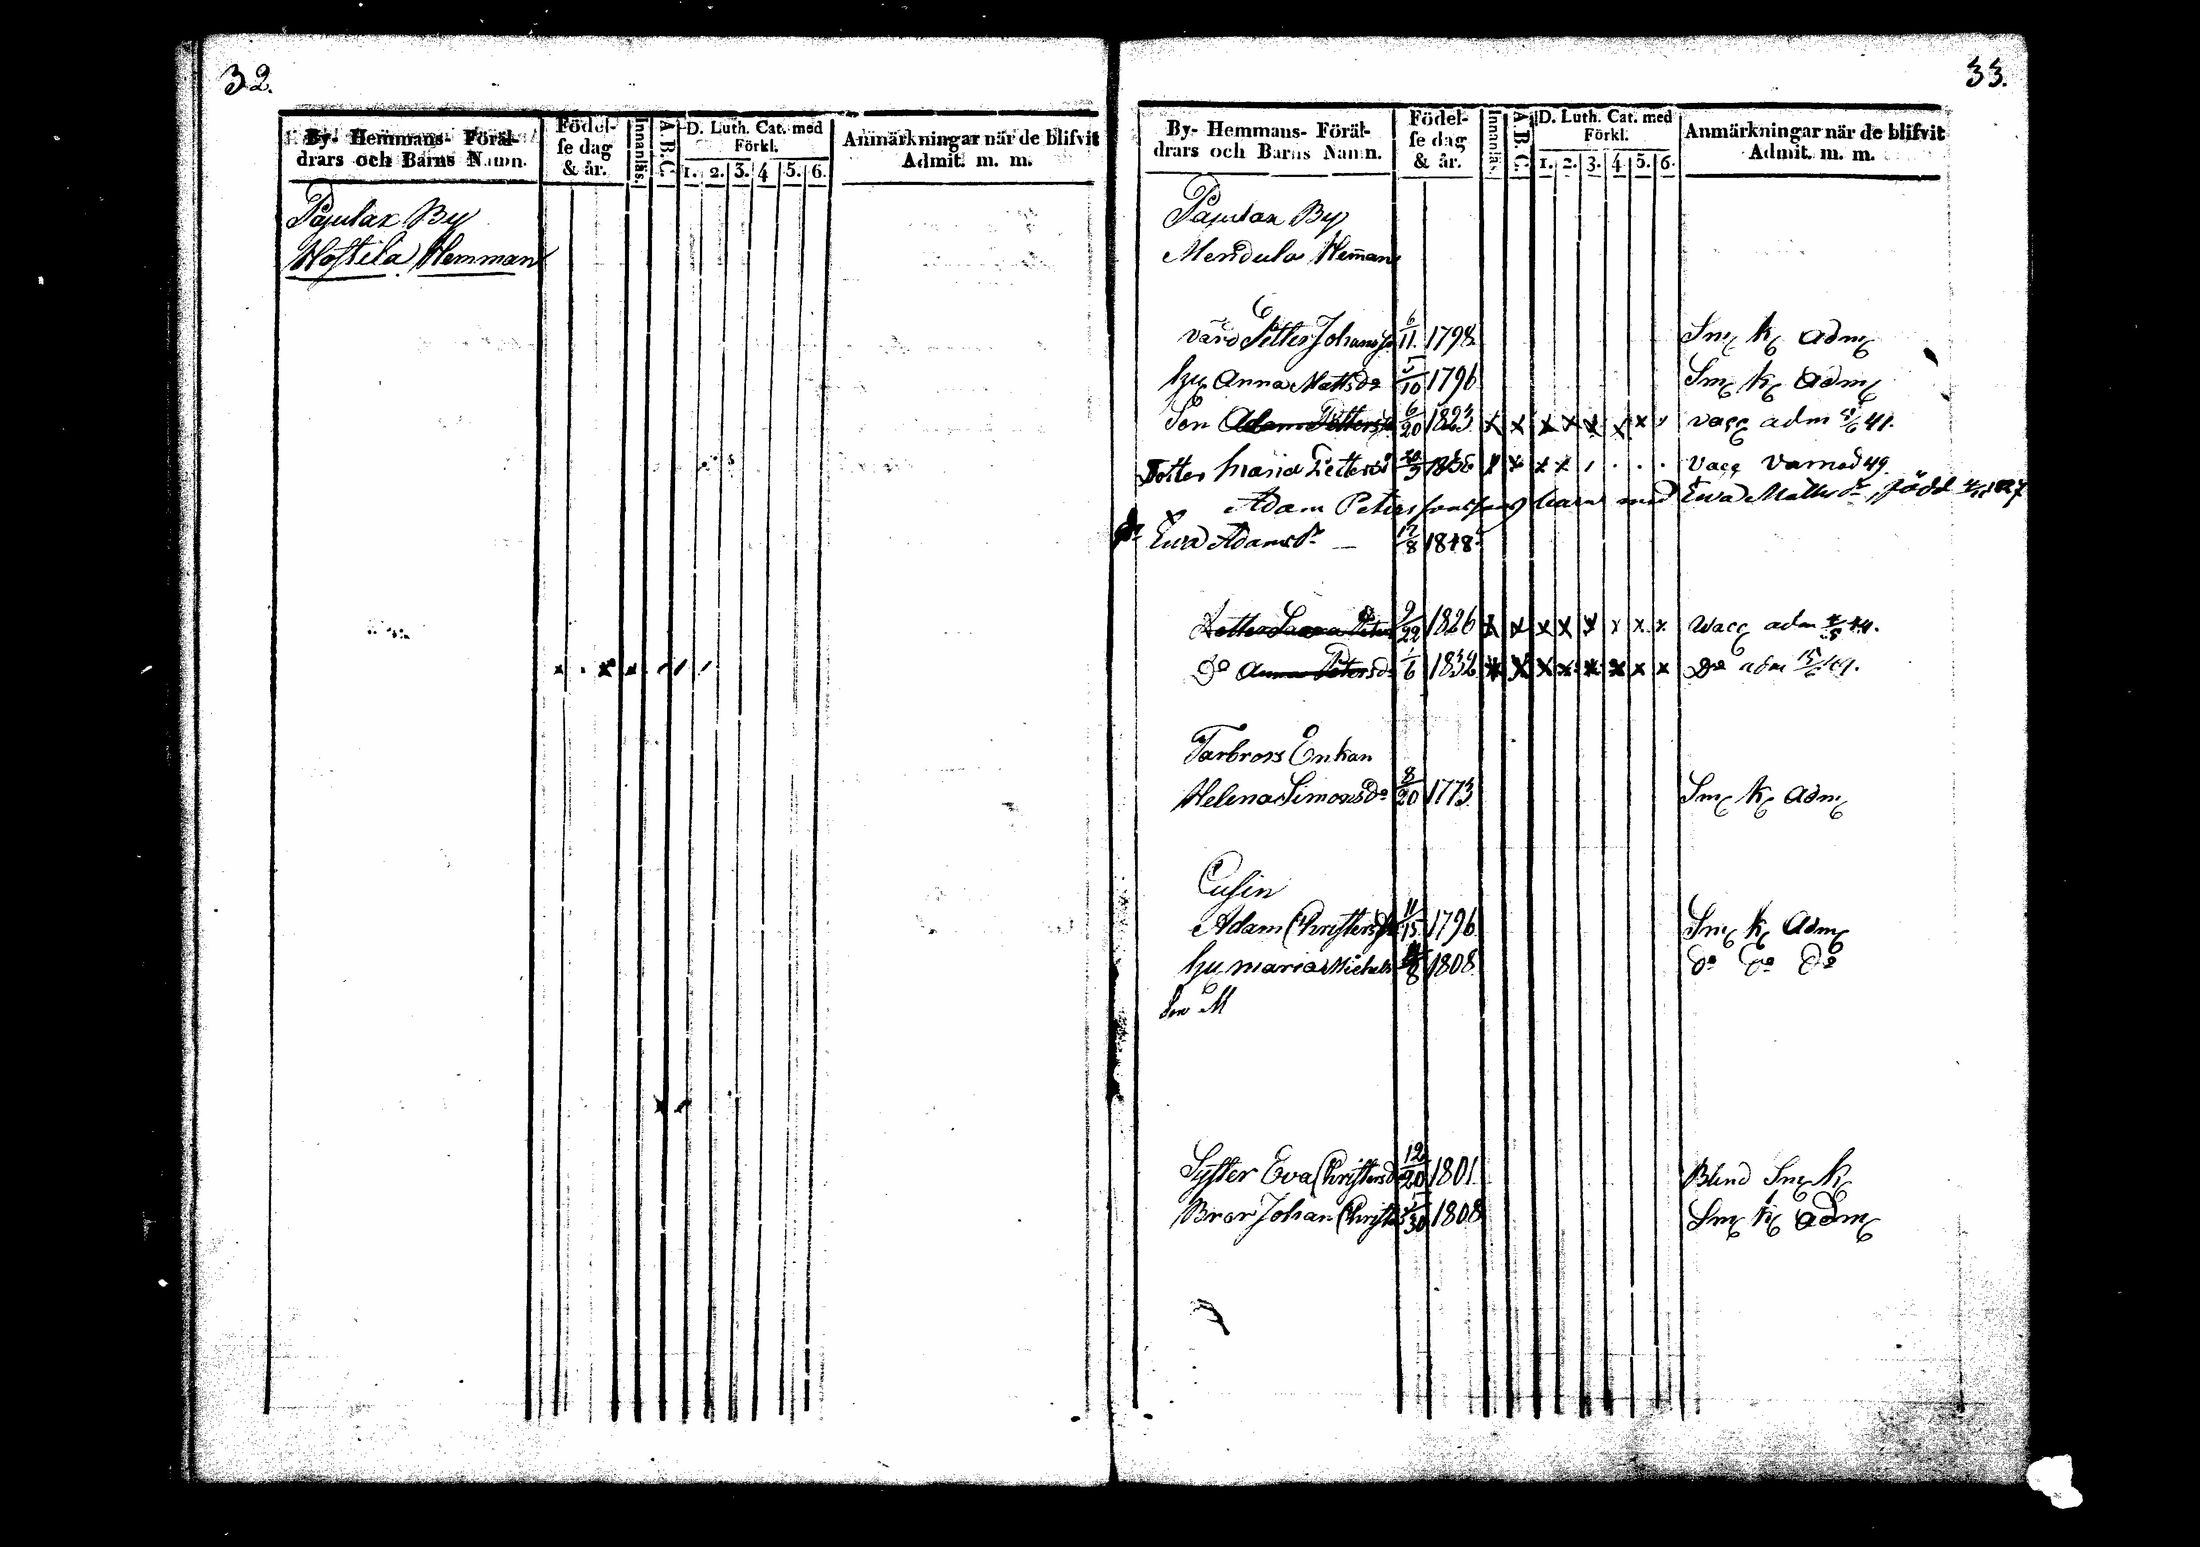 32.
By- Hemmans- Föräl-
drars och Barns Namn.
Födel-
se dag
& år.
Innanläs.
A.B.C.
D. Luth. Cat. med
Förkl.
1. 2. 3. 4 5. 6.
Anmärkningar när de blifvit
Admit. m. m.
Pajulax By
Hostila Hemman
33.
By- Hemmans- Föräl-
drars och Barns Namn.
Födel-
se dag
& år.
Innanläs.
A.B.C.
D. Luth. Cat. med
Förkl.
1. 2. 3. 4 5. 6.
Anmärkningar när de blifvit
Admit. m. m.
Pajulax By
Mendula Hem̄an
värd Petter Johans 6/11. 1798 Sm k adm
hu Anna Mattsdr 5/10 1796 Sm k adm
Son Adam Petters 6/20 1823 x x x x x x x vacc adm 41.
Dotter Maria Petters 1836 x x x x vacc 49
Adam Peters barn med Ewa Mattsdr, född
Ewa Adamsdr — 17/8 1848
Dotter Peters 9/22 1826 x x x x x x x x Wacc adm 44.
Do Anna Petersdr 1/6 1832 x x x x x x x x Do adm 49.
Farbrors Enkan
Helena Simonsdr 8/20 1773 Sm k adm
Cusin
Adam Christers 11/15 1796 Sm k adm
hu Maria Michels 8 1808 do do do
Son M
Syster Eva Christersdr 12/20 1801 Blind Sm k
Bror Johan Christ 30 1808 Sm k adm